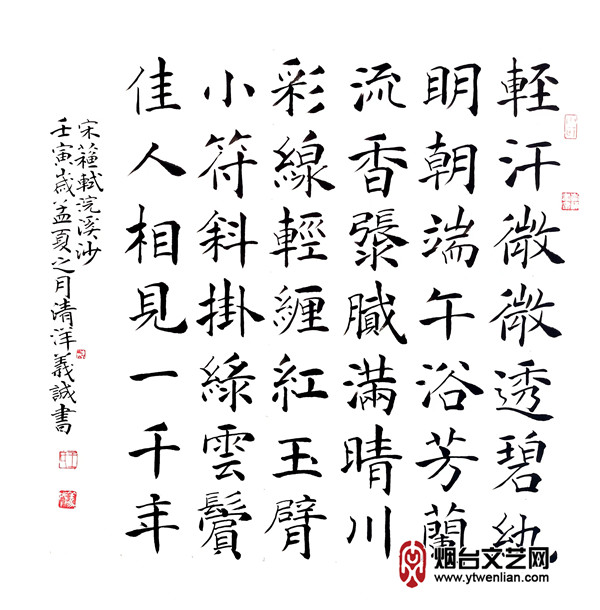 輕汗微微透碧紈
明朝端午浴芳蘭
流香漲膩滿晴川
彩線輕纏紅玉臂
小符斜掛綠雲鬟
佳人相見一千年
宋蘇軾浣溪沙
壬寅歲孟夏之月清洋義誠書
烟台文艺网
www.ytwenlian.com